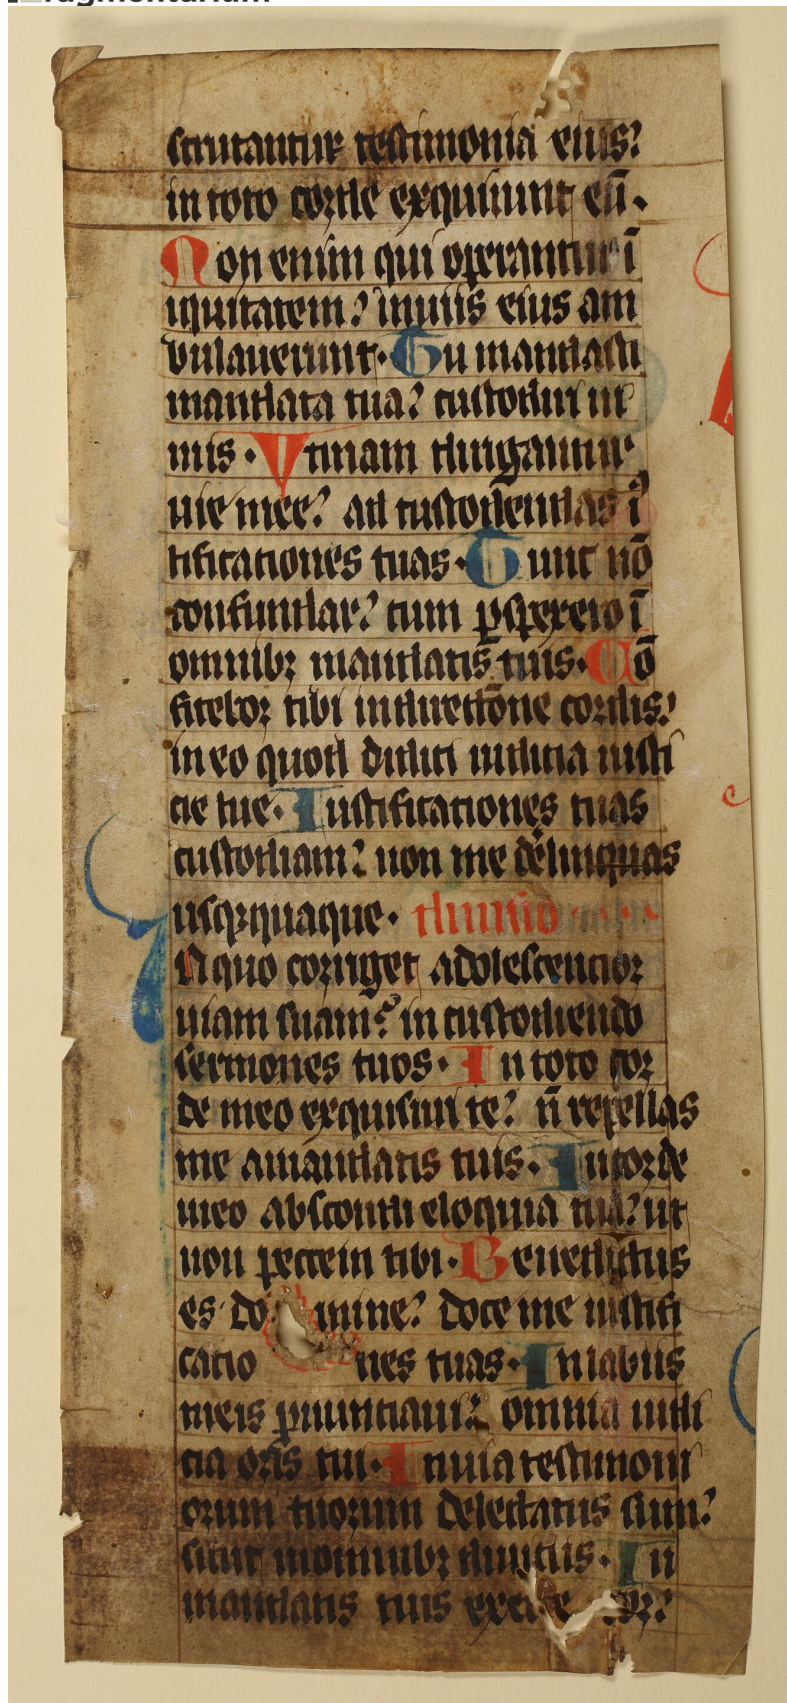 ragmentarium
scrutantur testimonia eius?
in toto corde exquirunt eū.
Non enim qui operantur ī
iquitatem? in uiis eius am
bulauerunt. Tu mandasti
mandata tua? custodiri ni
mis. Vtinam dirigantur
uie mee? ad custodiendas i
tificationes tuas. Tunc nō
confundar? cum pspexero ī
omnibꝫ mandatis tuis. Cō
fitebor tibi in directione cordis?
in eo quod didici iudicia iusti
cie tue. Iustificationes tuas
custodiam? non me derelinquas
usqꝫquaque.
In quo corriget adolescentior
uiam suam? in custodiendo
sermones tuos. In toto cor
de meo exquisiui te? n̄ repellas
me a mandatis tuis. In corde
meo abscondi eloquia tua? ut
non peccem tibi. Benedictus
es do mine? doce me iustifi
catio nes tuas. In labiis
meis pnuntiaui? omnia iudi
cia oris tui. In uia testimoni
orum tuorum delectatus sum?
sicut in omnibꝫ diuitiis. In
mandatis tuis exerce or?